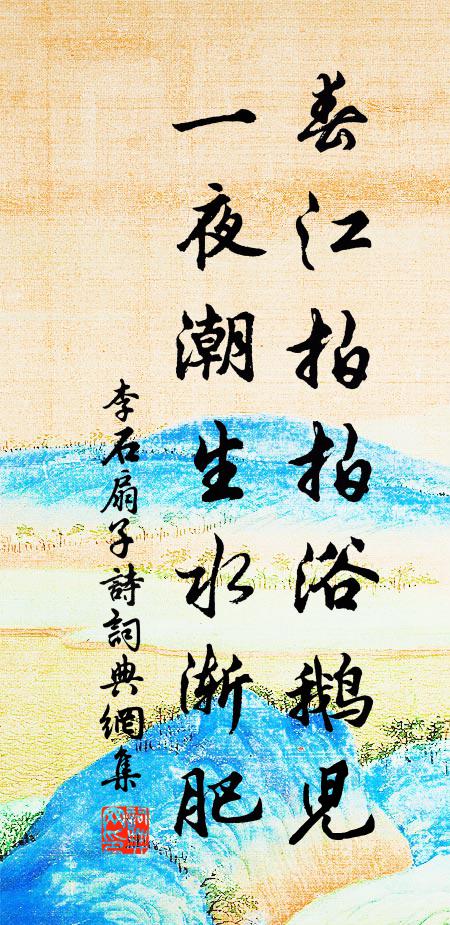 春江拍拍浴鵝児
一夜潮生水漸肥
李石扇子詩詞典網集